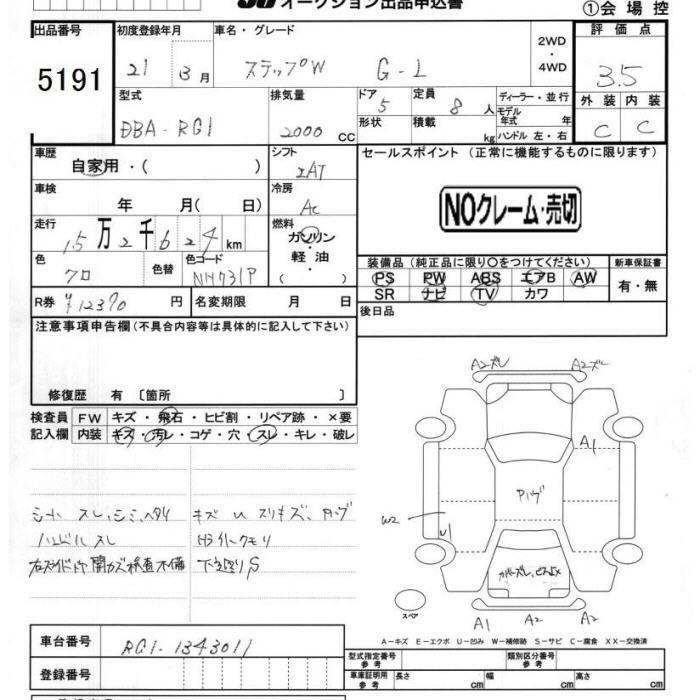 オークション出品申込書
①会 場 控
出品番号
5191
初度登録年月
21 3 月
車名・グレード
ステップW G-L
2WD
・
4WD
評 価 点
3.5
外 装 内 装
C C
型式
DBA-RG1
排気量
2000 CC
ドア
5
定員
8 人
形状
積載
kg
ディーラー・並行
モデル
年式 年
ハンドル 左・右
車歴
自家用・( )
シフト
IAT
車検
年 月( 日)
冷房
AC
走行
15 万 2 千 6 2 4 km
燃料
ガソリン
・
軽 油
( )
色
クロ
色替
色コード
NH731P
R券 ¥12370 円
名変期限 月 日
セールスポイント (正常に機能するものに限ります)
NOクレーム・売切
装備品 (純正品に限り○をつけてください)
PS PW ABS エアB AW
SR ナビ TV カワ
新車保証書
有・無
後日品
注意事項申告欄 (不具合内容等は具体的に記入して下さい)
修復歴 有 〔箇所 〕
検査員
記入欄
FW キズ・飛石・ヒビ割・リペア跡・×要
内装 キズ・汚レ・コゲ・穴・スレ・キレ・破レ
シート スレ、シミ、ヘタリ
ハンドル スレ
キズ U スリキズ、Pハゲ
H3ライトクモリ
下廻りS
A2ズレ A2ズレ
A1
Pハゲ
W2
U1
A1 A2 A2
スペア
A-キズ E-エクボ U-凹み W-補修跡 S-サビ C-腐食 XX-交換済
車台番号 RG1-1343011
登録番号
型式指定番号
参 考
類別区分番号
参 考
車庫証明用
参 考
長さ cm 幅 cm 高さ cm